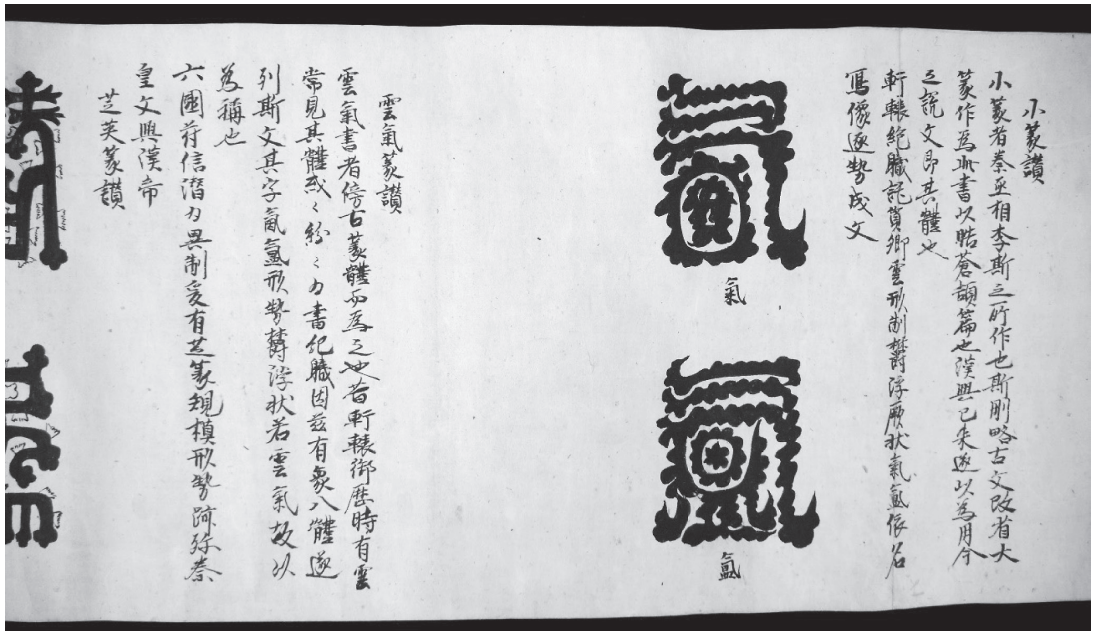 小篆讃
小篆者秦丞相李斯之所作也斯刪略古文改省大
篆作為此書以酷蒼頡篇也漢興已來遂以為用今
之說文即其體也
軒轅絶職託質卿雲形制欝浮厥状氣氳依名
寫像逐勢成文
氣
氳
雲氣篆讃
雲氣書者傍古篆體而為之也昔軒轅御歷時有雲
常見其體或〻紛〻乃書紀職因茲有象八體遂
列斯文其字氣氳形勢欝浮状若雲氣故以
為稱也
六國符信潜乃異制爰有芝篆規模形勢跡殊秦
皇文興漢帝
芝英篆讃